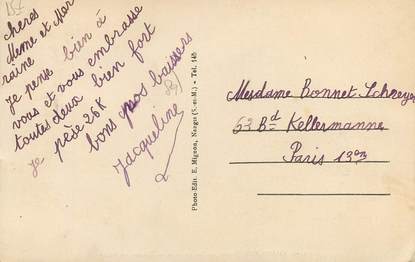 chères
Meme et Mar
raine
Je pense bien à
vous et vous embrasse
toutes deux bien fort
Je pèse 26K
bons gros baisers
Jacqueline
Photo-Edit. E. Mignon, Nangis (S.-et-M.) - Tél. 148
Mesdame Bonnet-Schreyer
53 Bd Kellermanne
Paris 13em